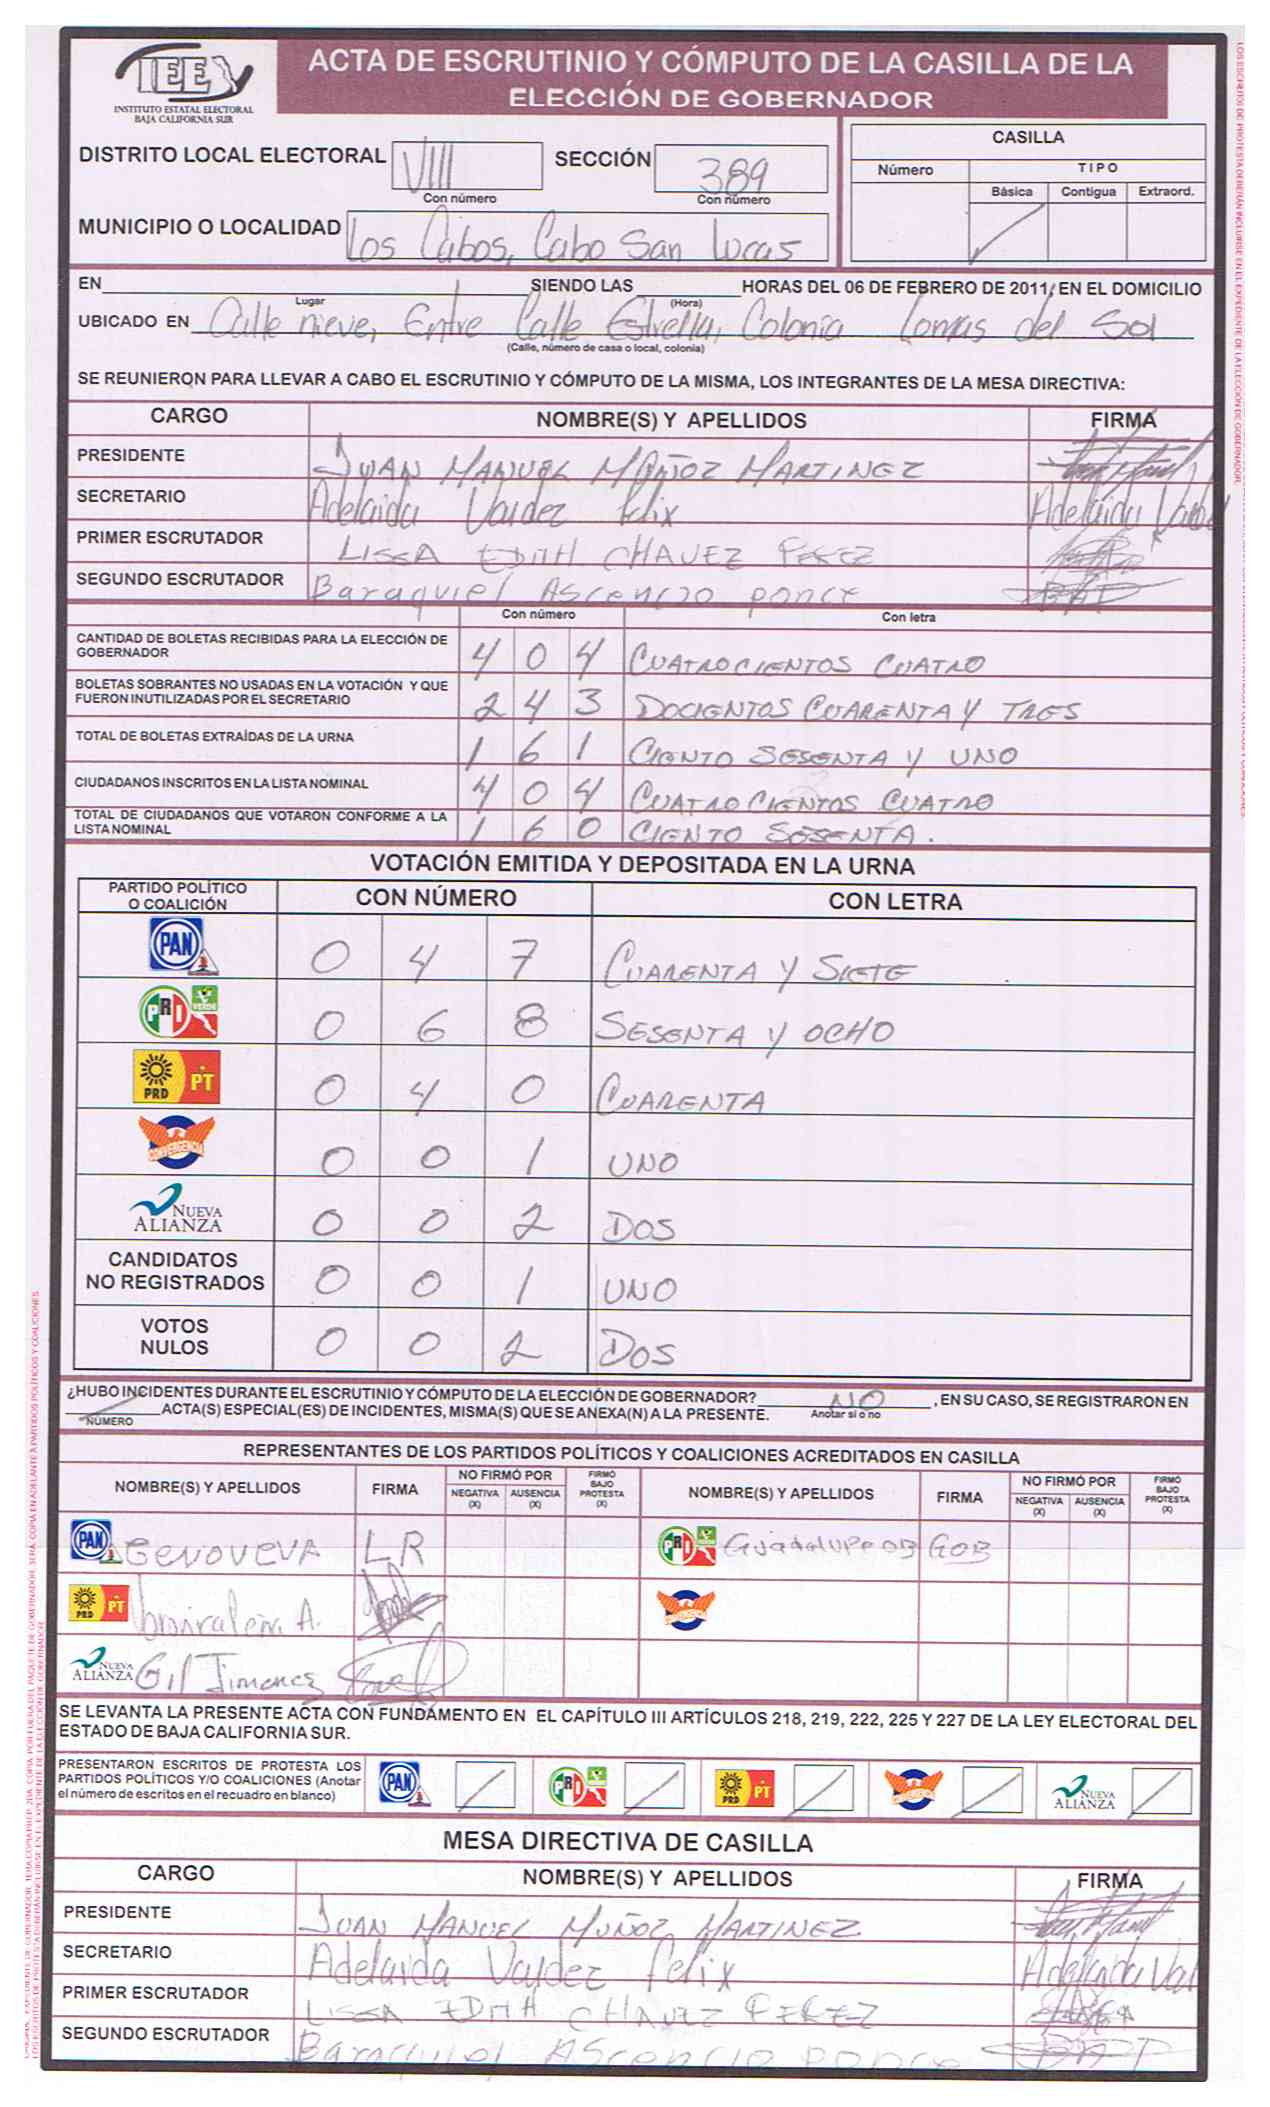 IEE
INSTITUTO ESTATAL ELECTORAL
BAJA CALIFORNIA SUR
ACTA DE ESCRUTINIO Y CÓMPUTO DE LA CASILLA DE LA
ELECCIÓN DE GOBERNADOR
DISTRITO LOCAL ELECTORAL VIII SECCIÓN 389
Con número Con número
MUNICIPIO O LOCALIDAD Los Cabos, Cabo San Lucas
CASILLA
Número TIPO
Básica Contigua Extraord.
EN SIENDO LAS HORAS DEL 06 DE FEBRERO DE 2011, EN EL DOMICILIO
Lugar (Hora)
UBICADO EN Calle nieve, Entre Calle Estrella, Colonia Lomas del Sol
(Calle, número de casa o local, colonia)
SE REUNIERON PARA LLEVAR A CABO EL ESCRUTINIO Y CÓMPUTO DE LA MISMA, LOS INTEGRANTES DE LA MESA DIRECTIVA:
CARGO NOMBRE(S) Y APELLIDOS FIRMA
PRESIDENTE JUAN MANUEL MUÑOZ MARTINEZ
SECRETARIO Adelaida Valdez Felix Adelaida
PRIMER ESCRUTADOR LISSA EDITH CHAVEZ PEREZ
SEGUNDO ESCRUTADOR Baraquiel Ascencio ponce
Con número Con letra
CANTIDAD DE BOLETAS RECIBIDAS PARA LA ELECCIÓN DE
GOBERNADOR 4 0 4 CUATROCIENTOS CUATRO
BOLETAS SOBRANTES NO USADAS EN LA VOTACIÓN Y QUE
FUERON INUTILIZADAS POR EL SECRETARIO 2 4 3 DOCIENTOS CUARENTA Y TRES
TOTAL DE BOLETAS EXTRAÍDAS DE LA URNA 1 6 1 CIENTO SESENTA Y UNO
CIUDADANOS INSCRITOS EN LA LISTA NOMINAL 4 0 4 CUATROCIENTOS CUATRO
TOTAL DE CIUDADANOS QUE VOTARON CONFORME A LA
LISTA NOMINAL 1 6 0 CIENTO SESENTA.
VOTACIÓN EMITIDA Y DEPOSITADA EN LA URNA
PARTIDO POLÍTICO
O COALICIÓN CON NÚMERO CON LETRA
PAN 0 4 7 CUARENTA Y SIETE
PRI VERDE 0 6 8 SESENTA Y OCHO
PRD PT 0 4 0 CUARENTA
CONVERGENCIA 0 0 1 UNO
NUEVA ALIANZA 0 0 2 DOS
CANDIDATOS
NO REGISTRADOS 0 0 1 UNO
VOTOS
NULOS 0 0 2 DOS
¿HUBO INCIDENTES DURANTE EL ESCRUTINIO Y CÓMPUTO DE LA ELECCIÓN DE GOBERNADOR? NO, EN SU CASO, SE REGISTRARON EN
ACTA(S) ESPECIAL(ES) DE INCIDENTES, MISMA(S) QUE SE ANEXA(N) A LA PRESENTE. Anotar sí o no
NÚMERO
REPRESENTANTES DE LOS PARTIDOS POLÍTICOS Y COALICIONES ACREDITADOS EN CASILLA
NOMBRE(S) Y APELLIDOS FIRMA NO FIRMÓ POR NEGATIVA (X) AUSENCIA (X) FIRMÓ BAJO PROTESTA (X) NOMBRE(S) Y APELLIDOS FIRMA NO FIRMÓ POR NEGATIVA (X) AUSENCIA (X) FIRMÓ BAJO PROTESTA (X)
PAN GENOVEVA LR PRI Guadalupe OB GOB
PRD PT A.
NUEVA ALIANZA Gil Jimenez
SE LEVANTA LA PRESENTE ACTA CON FUNDAMENTO EN EL CAPÍTULO III ARTÍCULOS 218, 219, 222, 225 Y 227 DE LA LEY ELECTORAL DEL
ESTADO DE BAJA CALIFORNIA SUR.
PRESENTARON ESCRITOS DE PROTESTA LOS
PARTIDOS POLÍTICOS Y/O COALICIONES (Anotar
el número de escritos en el recuadro en blanco) PAN PRI PRD PT NUEVA ALIANZA
MESA DIRECTIVA DE CASILLA
CARGO NOMBRE(S) Y APELLIDOS FIRMA
PRESIDENTE JUAN MANUEL MUÑOZ MARTINEZ
SECRETARIO Adelaida Valdez Felix Adelaida Val
PRIMER ESCRUTADOR LISSA EDITH CHAVEZ PEREZ
SEGUNDO ESCRUTADOR Baraquiel Ascencio ponce